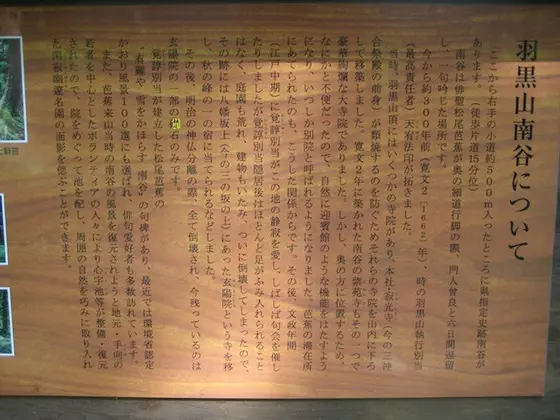 羽黒山南谷について
ここから右手の小道約500m入ったところに県指定史跡南谷が
あります。(徒歩片道15分位)
南谷は俳聖松尾芭蕉が奥の細道行脚の際、門人曽良と六日間逗留
し、一句吟じた場所です。
今から約300年前(寛文2〔1662〕年)、時の羽黒山執行別当
(最高責任者)天宥法印が拓きました。
当時、羽黒山頂にはいくつかの寺院があり、本社・寂光寺(今の三神
合祭殿の前身)が類焼するのを防ぐためそれらの寺院を山内に下ろ
して移築しました。寛文2年に築かれた南谷の紫苑寺もその一つで
豪華絢爛な大寺院でありました。しかし、奥の方に位置するため、
なにかと不便だったので、自然に迎賓館のような機能をはたすよう
になり、いつしか別院と呼ばれるようになりました。芭蕉の滞在所
にあてられたのも、こうした関係からです。その後、文政年間
(江戸中期)に覚諄別当がこの地の静寂を愛し、しばしば句会を催し
たりしましたが覚諄別当隠居後はほとんど足がふみ入れられること
はなく、庭園は荒れ、建物もいたみ、ついに倒壊してしまったので、
その跡には八幡坂上(今の三の坂の上)にあった玄陽院という寺を移
し、秋の峰の一の宿に当てられるなどしました。
その後、明治の神仏分離の際、全て倒壊され、今残っているのは
玄陽院の一部の礎石のみです。
覚諄別当が建立した松尾芭蕉の
"有難や 雪をかほらす 南谷" の句碑があり、最近では環境省認定
かおり風景100選にも選ばれ、俳句愛好者も多数訪れています。
また、芭蕉来山当時の南谷の風景を復元されようと地元・手向の
若者を中心としたボランティアの人々により心字池等が整備・復元
されたので、院をめぐって池を配し、周囲の自然を巧みに取り入れ
た閑寂幽邃名園の面影を偲ぶことができます。